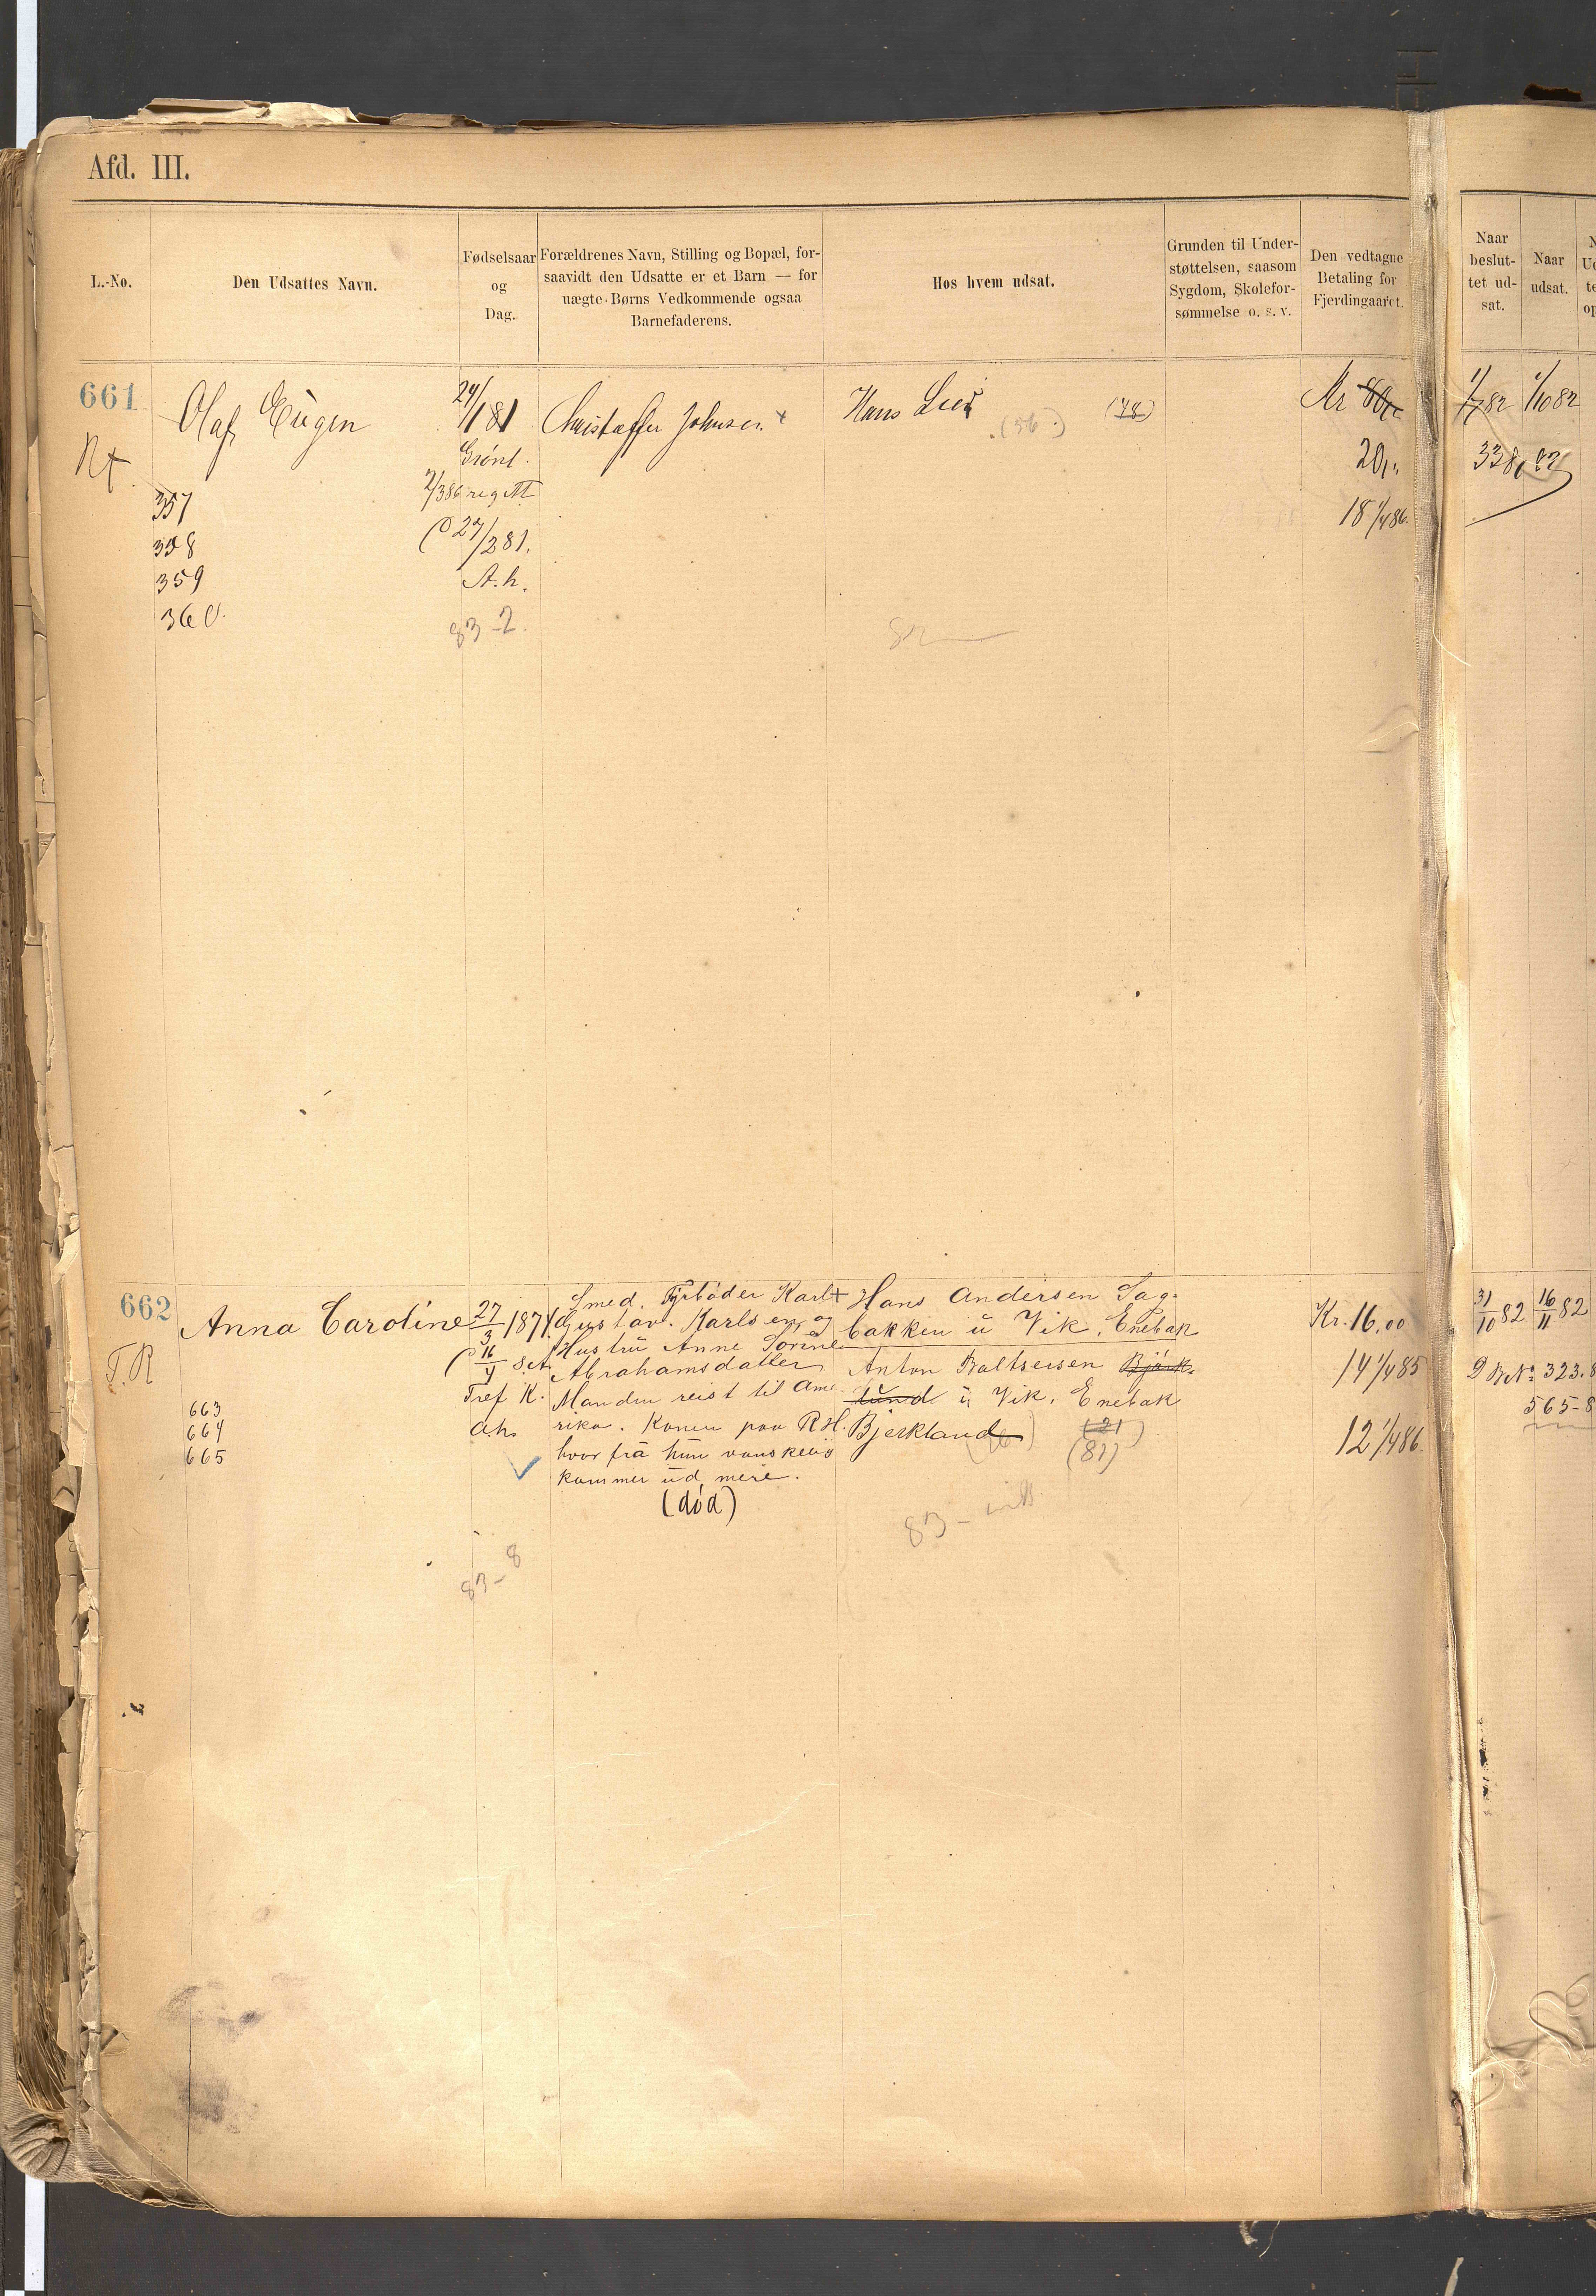 Afd. III.
L.-No.
Den Udsattes Navn.
Fødselsaar
og
Dag.
Forældrenes Navn, Stilling og Bopæl, for-
saavidt den Udsatte er et Barn — for
uægte Børns Vedkommende ogsaa
Barnefaderens.
Hos hvem udsat.
Grunden til Under-
støttelsen, saasom
Sygdom, Skolefor-
sømmelse o. s. v.
Den vedtagne
Betaling for
Fjerdingaaret.
Naar
beslut-
tet ud-
sat.
Naar
udsat.
661
Olaf Eugen
24/1 81
Christoffer Johnsen
Hans Lier
(56)
(78)
Kr 80,-
1/7 82
1/10 82
Grønl.
20,-
338, 82
357
18 1/4 86.
358
27/2 81.
359
A.h.
360.
83-2.
82
662
Anna Caroline
27/3 1871
Smed, Fyrbøder Karl
Gustav Karlsen, og
Hustru Anne Sorine
Abrahamsdatter
Manden reist til Ame
rika. Konen paa R.H.
hvor frå hun vanskelig
kommer ud mere.
(død)
Hans Andersen Sag-
bakken i Vik, Enebak
Anton Baltsersen Bjørk-
lund i Vik, Enebak
Bjerkland
(21)
(81)
Kr. 16,00
14 1/4 85
12 1/4 86.
31/10 82
16/11 82
323.8
565-8
T.R
16/4
Tref K.
a.h.
663
664
665
83-8
83 -